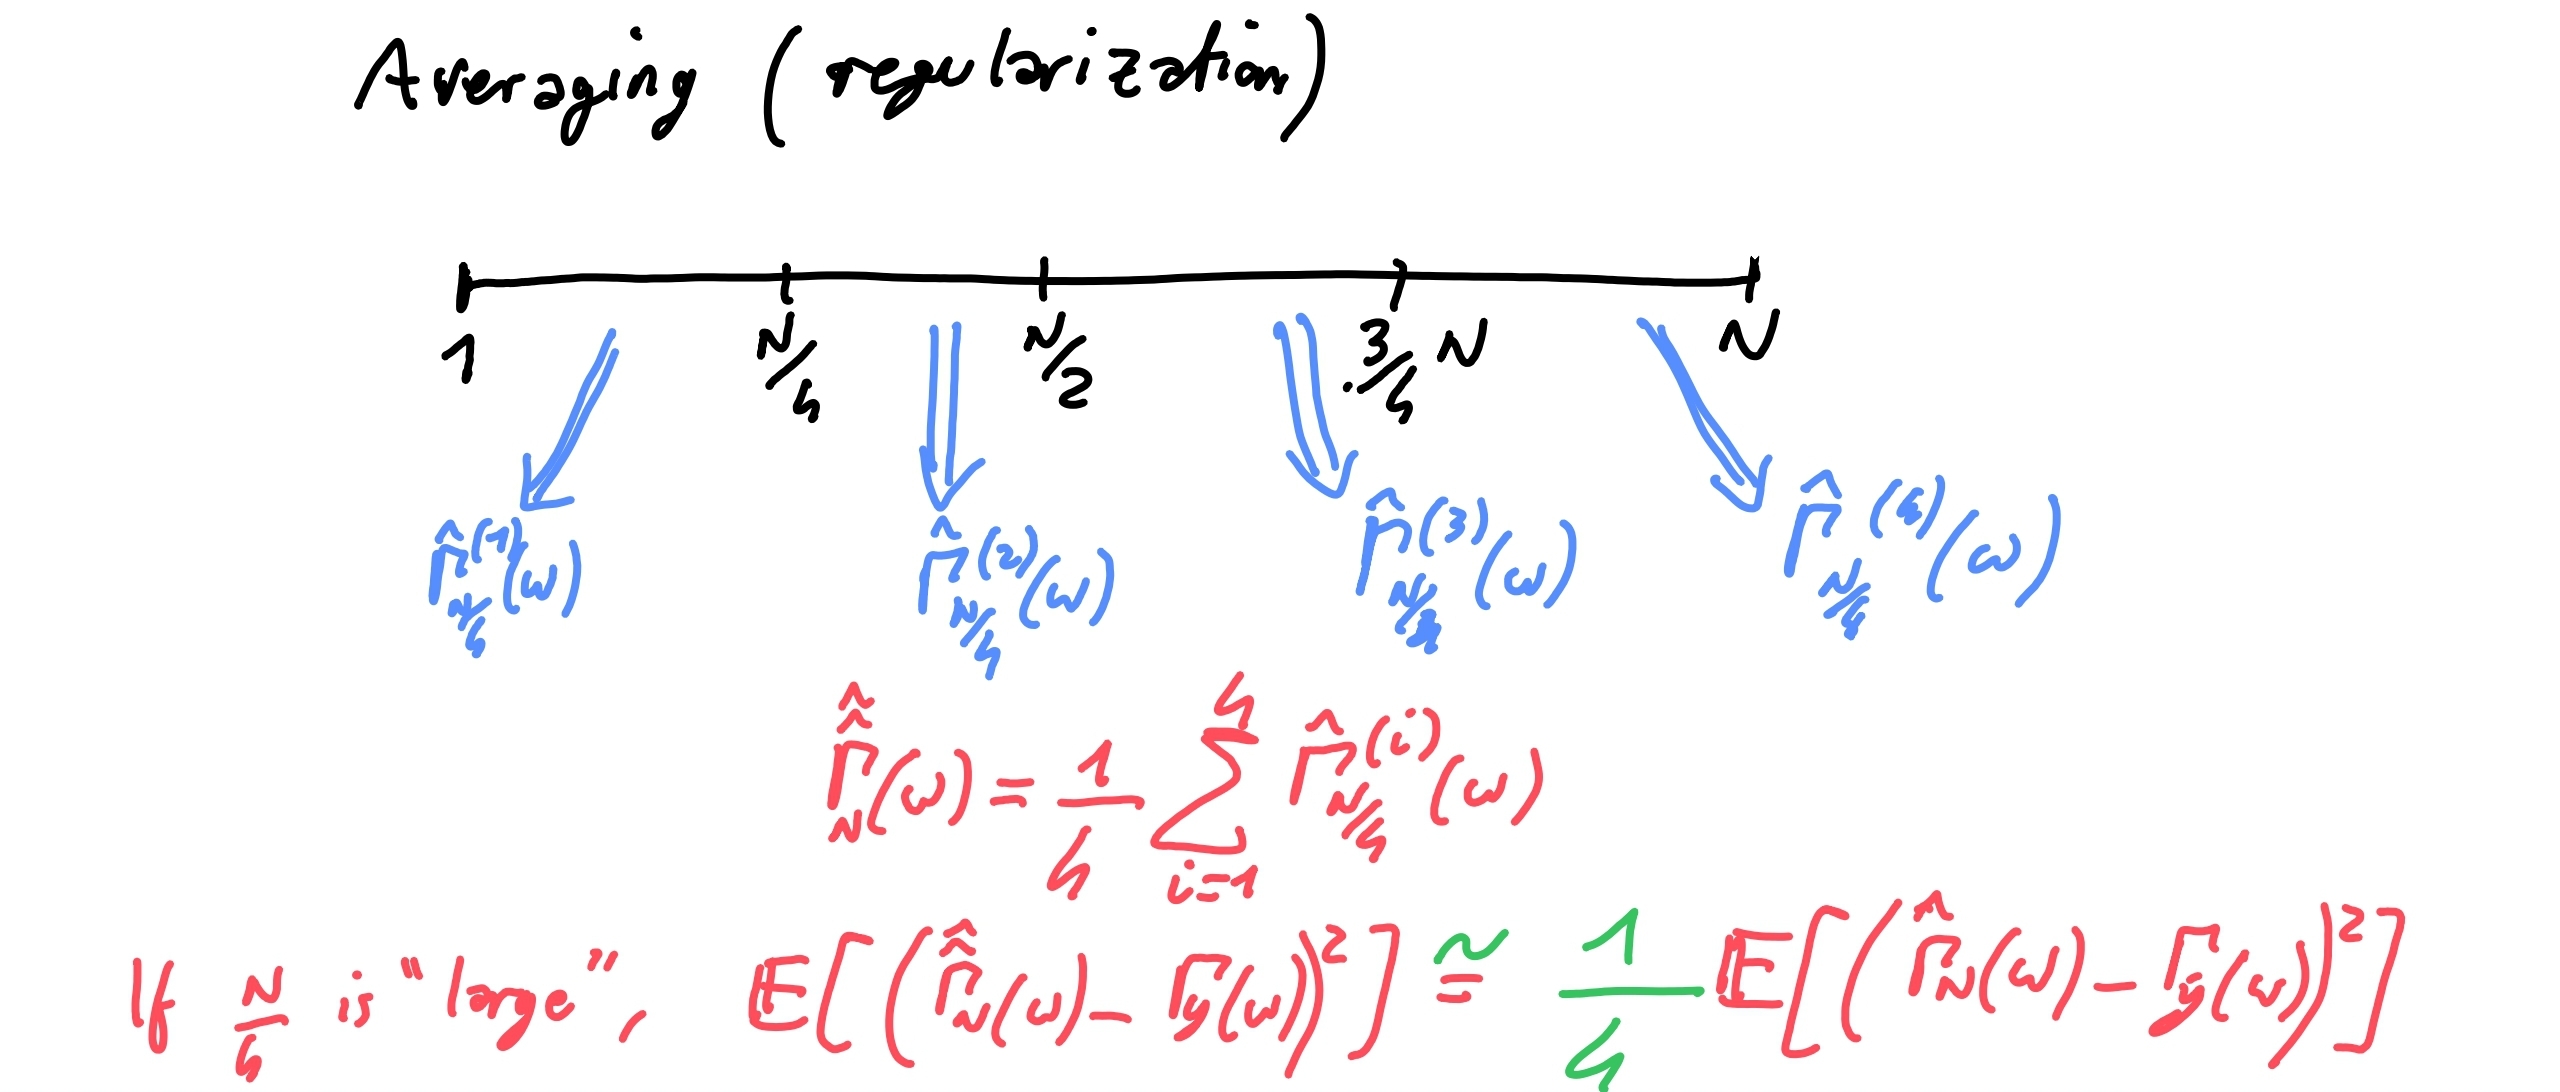 Averaging (regularization)
1 N/4 N/2 3/4 N N
Γ̂_{N/4}^{(1)}(ω) Γ̂_{N/4}^{(2)}(ω) Γ̂_{N/4}^{(3)}(ω) Γ̂_{N/4}^{(4)}(ω)
Γ̂̂_N(ω) = 1/4 ∑_{i=1}^{4} Γ̂_{N/4}^{(i)}(ω)
If N/4 is "large", E[(Γ̂̂_N(ω) - Γ_y(ω))^2] ≅ 1/4 E[(Γ̂_N(ω) - Γ_y(ω))^2]